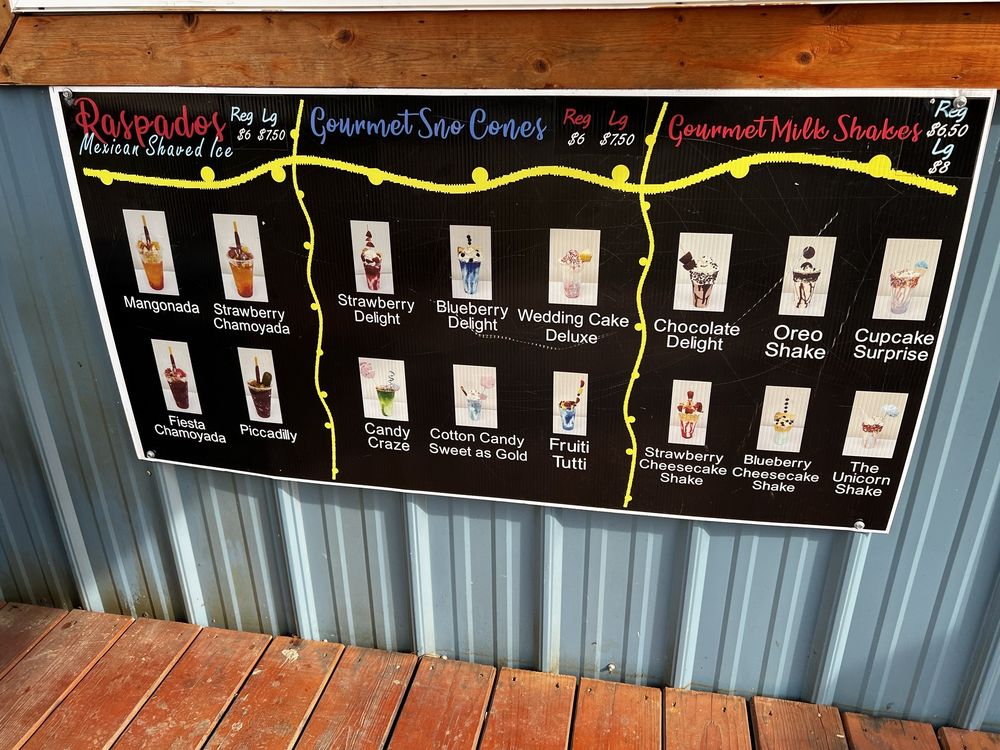 Raspados
Mexican Shaved Ice
Reg Lg
$6 $7.50
Mangonada
Strawberry
Chamoyada
Fiesta
Chamoyada
Piccadilly
Gourmet Sno Cones
Reg Lg
$6 $7.50
Strawberry
Delight
Blueberry
Delight
Wedding Cake
Deluxe
Candy
Craze
Cotton Candy
Sweet as Gold
Fruiti
Tutti
Gourmet Milk Shakes
Reg
$6.50
Lg
$8
Chocolate
Delight
Oreo
Shake
Cupcake
Surprise
Strawberry
Cheesecake
Shake
Blueberry
Cheesecake
Shake
The
Unicorn
Shake